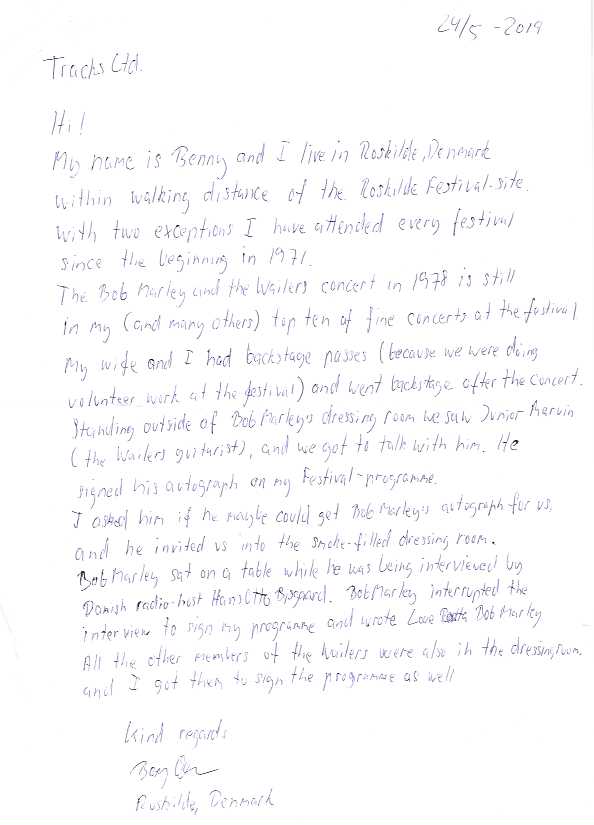 24/5 - 2019
Tracks Ltd.
Hi!
My name is Benny and I live in Roskilde, Denmark
within walking distance of the Roskilde Festival-site.
With two exceptions I have attended every festival
since the beginning in 1971.
The Bob Marley and the Wailers concert in 1978 is still
in my (and many others) top ten of fine concerts at the festival
My wife and I had backstage passes (because we were doing
volunteer work at the festival) and went backstage after the concert.
Standing outside of Bob Marley's dressing room we saw Junior Mervin
(the Wailers guitarist), and we got to talk with him. He
signed his autograph on my Festival-programme.
I asked him if he maybe could get Bob Marley's autograph for us,
and he invited us into the smoke-filled dressing room.
Bob Marley sat on a table while he was being interviewed by
Danish radio-host Hans Otto Bisgaard. Bob Marley interrupted the
interview to sign my programme and wrote Love Bob Marley
All the other members of the Wailers were also in the dressingroom.
and I got them to sign the programme as well
Kind regards
Roskilde, Denmark